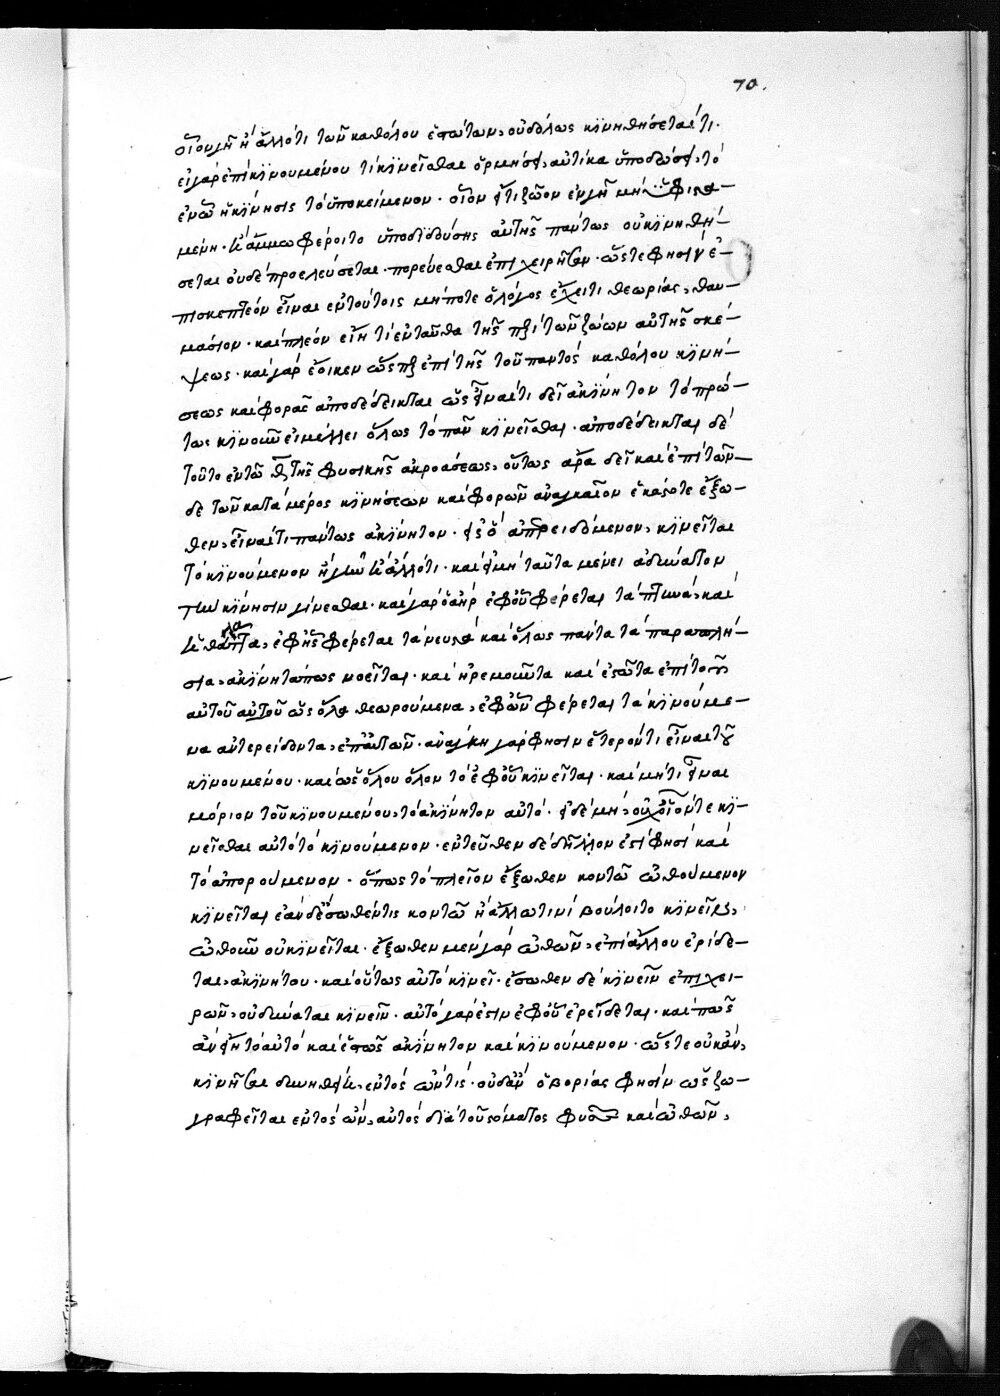 70.
οἷον γῆ ἢ ἄλλό τι τῶν καθόλου ἑστώτων, οὐδόλως κινηθήσεταί τι.
εἰ γὰρ ἐπὶ κινουμένου τί κινεῖσθαι ὁρμήσει, αὐτίκα ὑποδώσει τὸ
ἐν ᾧ ἡ κίνησις τὸ ὑποκείμενον. οἷον εἴ τι ζῷον ἐν γῆ μὴ
μένη. ἢ ἄμμω φέροιτο ὑποδιδούσης αὐτῆς πάντως οὐ κινηθή-
σεται οὐδὲ προελεύσεται. πορεύεσθαι ἐπιχειρῆσαν. ὥστε φησὶν ἐ-
πισκεπτέον εἶναι ἐν τούτοις μήποτε ὁ λόγος ἔχει τι θεωρίας, θαυ-
μάσιον. καὶ πλέον εἴη τι ἐνταῦθα τῆς περὶ τῶν ζώων αὐτῆς σκέ-
ψεως. καὶ γὰρ ἔοικεν ὥσπερ ἐπὶ τῆς τοῦ παντὸς καθόλου κινή-
σεως καὶ φορᾶς ἀποδέδεικται ὡς εἶναί τι δεῖ ἀκίνητον τὸ πρώ-
τως κινοῦν εἰ μέλλει ὅλως τὸ πᾶν κινεῖσθαι. ἀποδέδεικται δὲ
τοῦτο ἐν τῶ τῆς φυσικῆς ἀκροάσεως, οὕτως ἄρα δεῖ καὶ ἐπὶ τῶν-
δε τῶν κατὰ μέρος κινήσεων καὶ φορῶν ἀναγκαῖον ἑκάστοτε ἔξω-
θεν, εἶναί τι πάντως ἀκίνητον. πρὸς ὃ ἀπερειδόμενον, κινεῖται
τὸ κινούμενον ἢ γῆν ἢ ἄλλό τι. καὶ εἰ μὴ ταῦτα μένει ἀδύνατον
τὴν κίνησιν γίνεσθαι. καὶ γὰρ ὁ ἀὴρ ἐφ' οὗ φέρεται τὰ πτηνά, καὶ
ἡ θάλαττα, ἐφ' ἧς φέρεται τὰ νευστὰ καὶ ὅλως πάντα τὰ παραπλή-
σια, ἀκίνητά πως νοεῖται. καὶ ἠρεμοῦντα καὶ ἑστῶτα ἐπὶ τοῦ
αὐτοῦ αὐτοῦ ὡς ὅλα θεωρούμενα, ἐφ' ὧν φέρεται τὰ κινούμε-
να ἀντερείδοντα, ἐπ' αὐτῶν. ἀνάγκη γάρ φησιν ἕτερόν τι εἶναι τοῦ
κινουμένου. καὶ ὡς ὅλου ὅλον τὸ ἐφ' οὗ κινεῖται. καὶ μή τι εἶναι
μόριον τοῦ κινουμένου, τὸ ἀκίνητον αὐτό. εἰ δὲ μή, οὐχ οἷόν τε κι-
νεῖσθαι αὐτὸ τὸ κινούμενον. ἐντεῦθεν δὲ δῆλόν ἐστί φησὶ καὶ
τὸ ἀπορούμενον. ὅπως τὸ πλεῖον ἔξωθεν κοντῶ ὠθούμενον
κινεῖται ἐὰν δὲ ἔσωθέν τις κοντῶ ἢ ἄλλω τινὶ βούλοιτο κινεῖν,
ὠθοῦν οὐ κινεῖται. ἔξωθεν μὲν γὰρ ὠθῶν, ἐπὶ ἄλλου ἐρίδε-
ται, ἀκινήτου. καὶ οὕτως αὐτὸ κινεῖ. ἔσωθεν δὲ κινεῖν ἐπιχει-
ρῶν, οὐ δύναται κινεῖν. αὐτὸ γάρ ἐστιν ἐφ' οὗ ἐρείδεται. καὶ πῶς
ἂν εἴη τὸ αὐτὸ καὶ ἑστὼς ἀκίνητον καὶ κινούμενον. ὥστε οὐκ ἂν,
κινῆσαι δυνηθείη, ἐντὸς ὤν τις. οὐδ' ἂν ὁ βορίας φησὶν ὡς ζω-
γραφεῖται ἐντὸς ὢν, αὐτὸς διὰ τοῦ στόματος φυσῶν καὶ ὠθῶν,